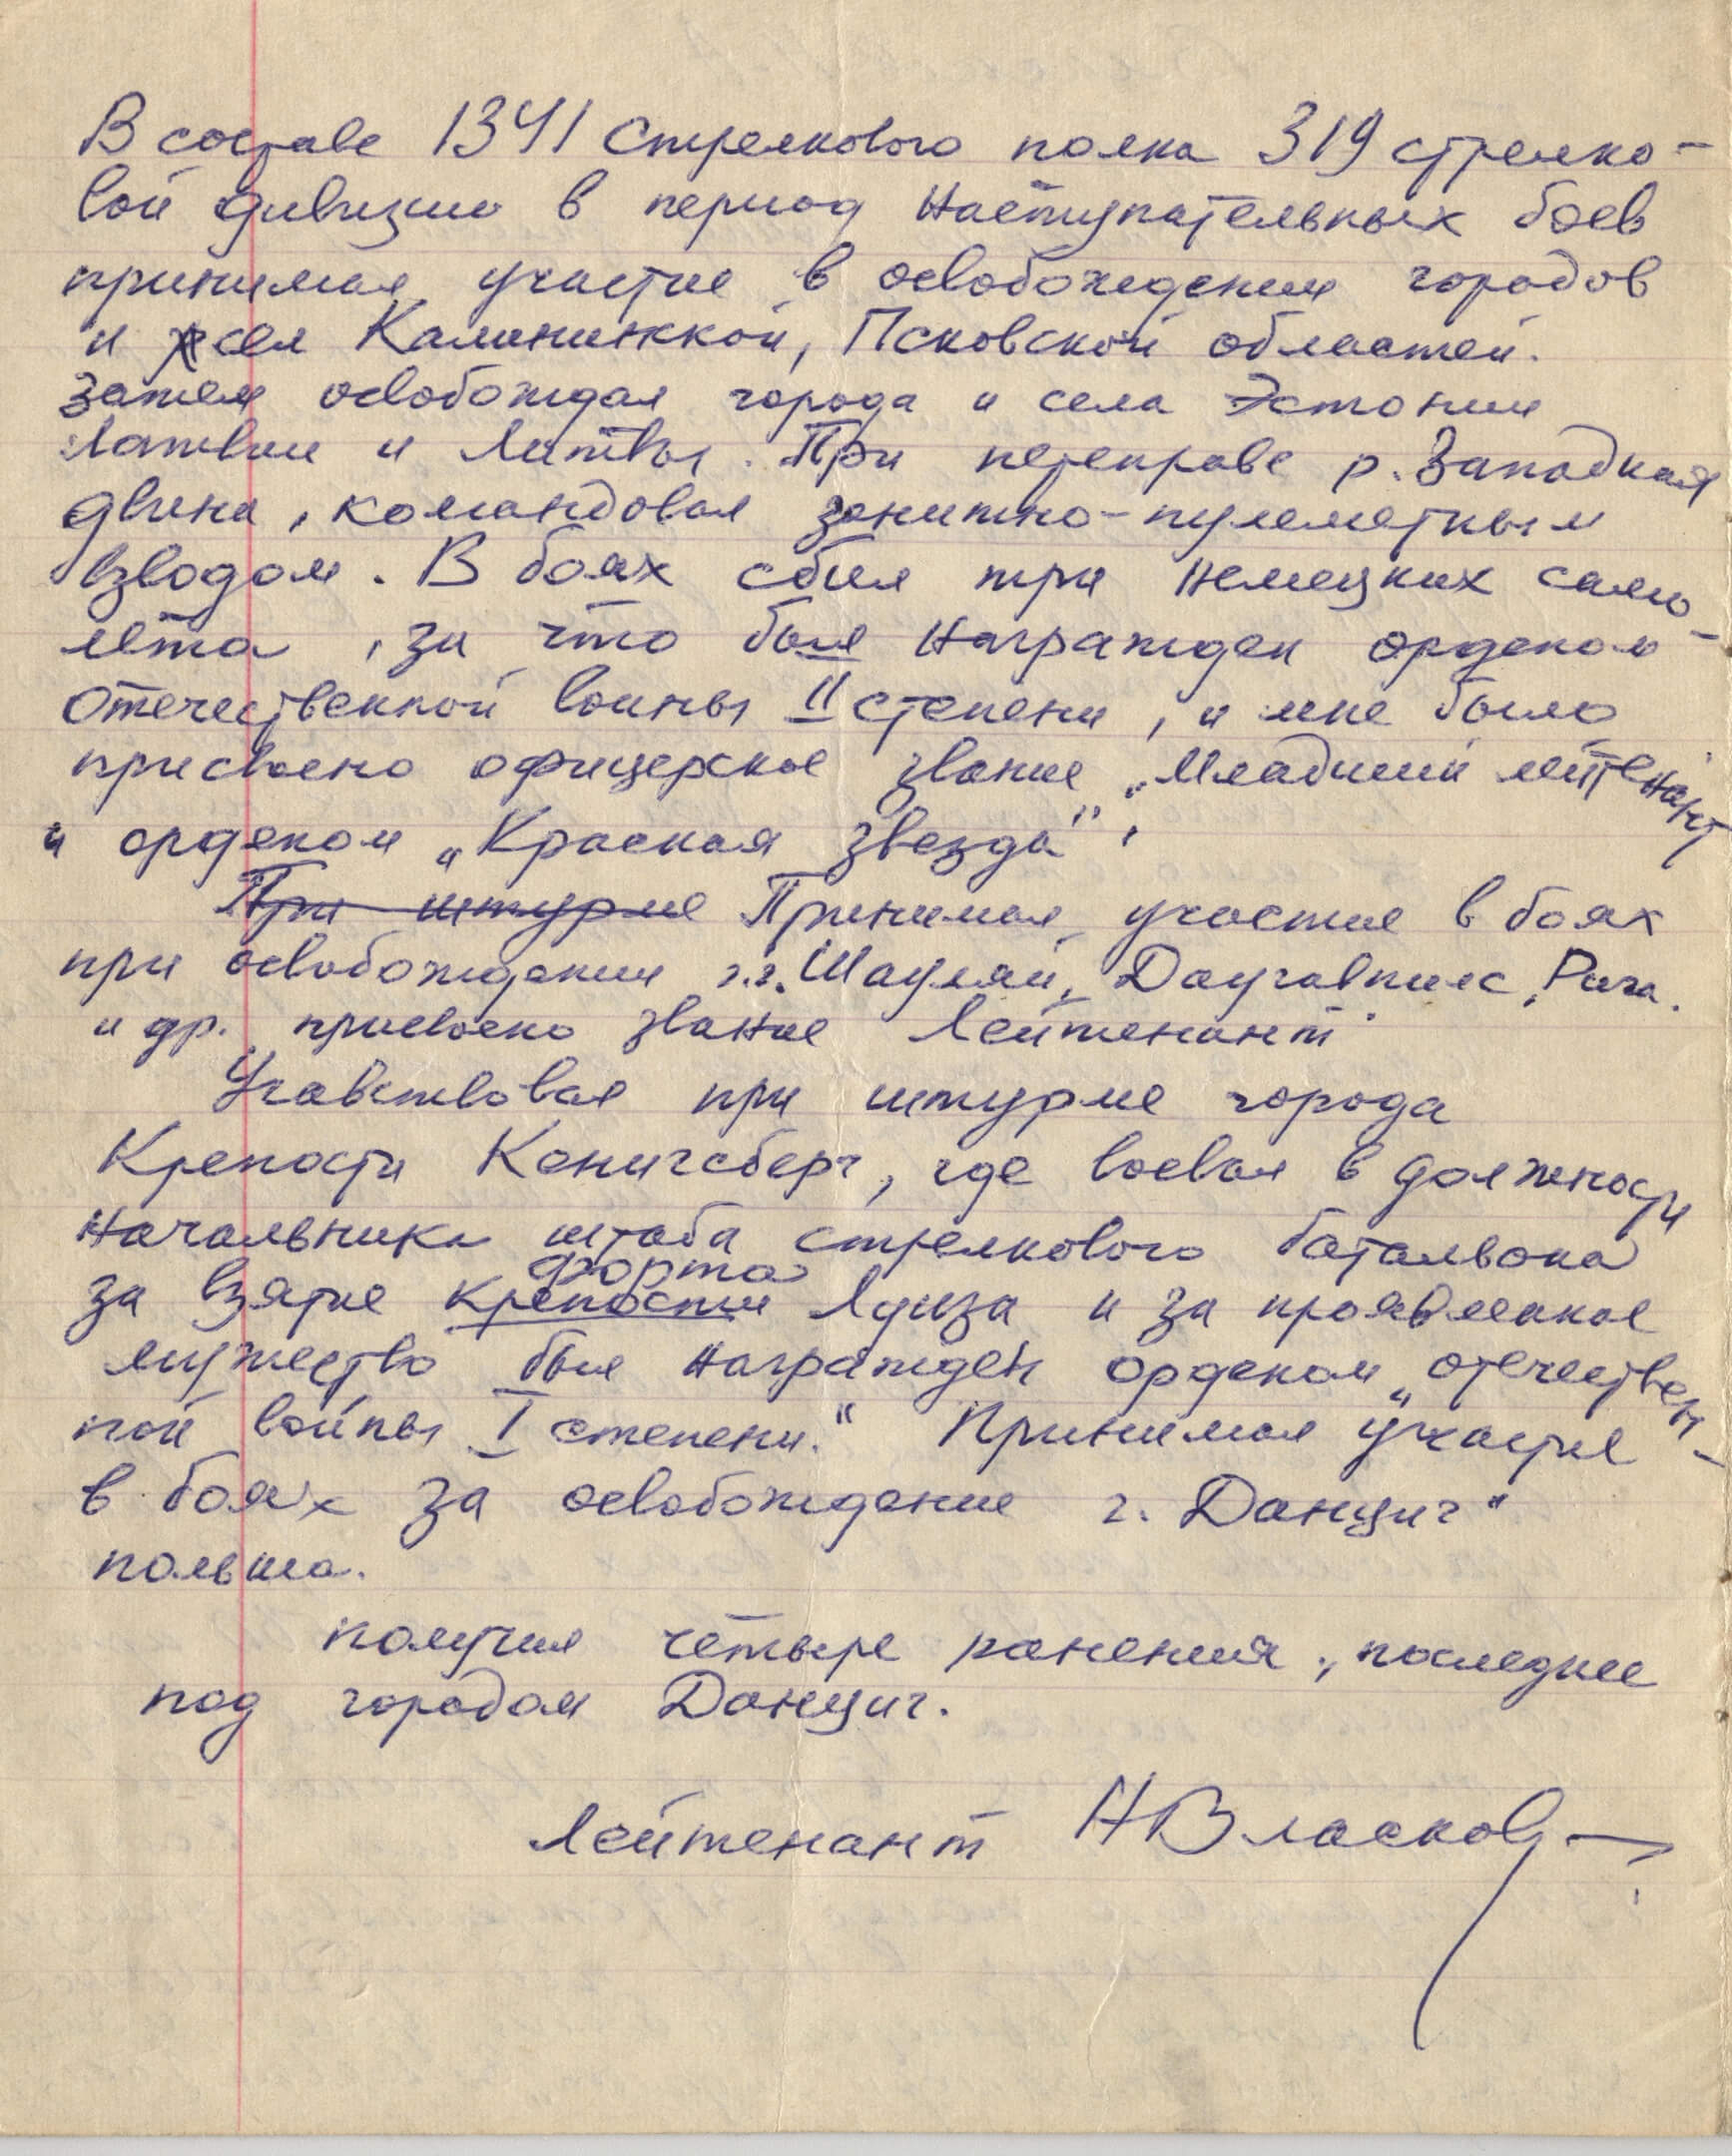 В составе 1341 стрелкового полка 319 стрелко-
вой дивизии в период наступательных боев
принимал участие в освобождении городов
и сел Калининккой, Псковской областей.
Затем освобождал города и села Эстонии
Латвии и Литвы. При переправе р. Западная
двина, командовал зенитно-пулеметным
взводом. В боях сбил три немецких само-
лета, за что был награжден орденом
отечественной воины II степени, и мне было
присвоено офицерское звание „Младший лейтенант
и орденом „Красная звезда",
При штурме Принимал участие в боях
при освобождении г.г. Шауляй, Даугавпилс, Рига.
и др. присвоено звание Лейтенант
Учавствовал при штурме города
Крепости Кенигсберг, где воевал в должности
начальника штаба стрелкового батальона
форта
за взятие крепости Луиза и за проявленное
мужество был награжден орденом „отечествен-
ной войны I степени." Принимал участие
в боях за освобождение г. Данциг"
польша.
получил четыре ранения, последнее
под городом Данциг.
Лейтенант НВласков